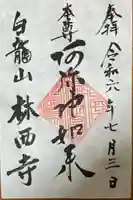 奉拝 令和六年七月三日
本尊 阿弥陀如来
白龍山 林西寺